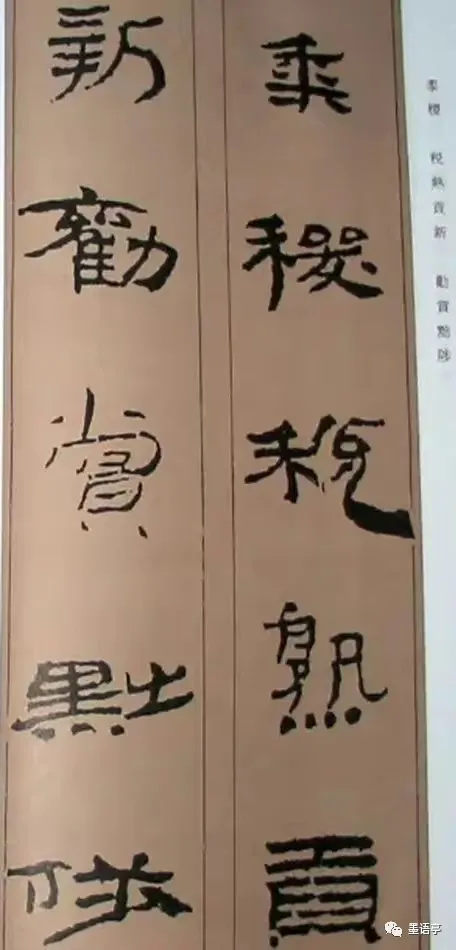 黍稷 税熟貢新 勸賞黜陟
黍稷税熟貢
新勸賞黜陟
墨语亭